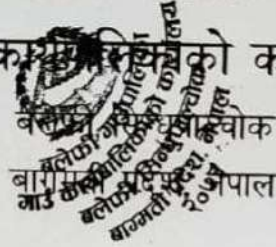 कार्यपालिकाको
बलेफी सिन्धुपाल्चोक
बागमती प्रदेश, नेपाल
बलेफी गाउँपालिका
गाउँ कार्यपालिकाको कार्यालय
बलेफी, सिन्धुपाल्चोक
बागमती प्रदेश, नेपाल
२०७३